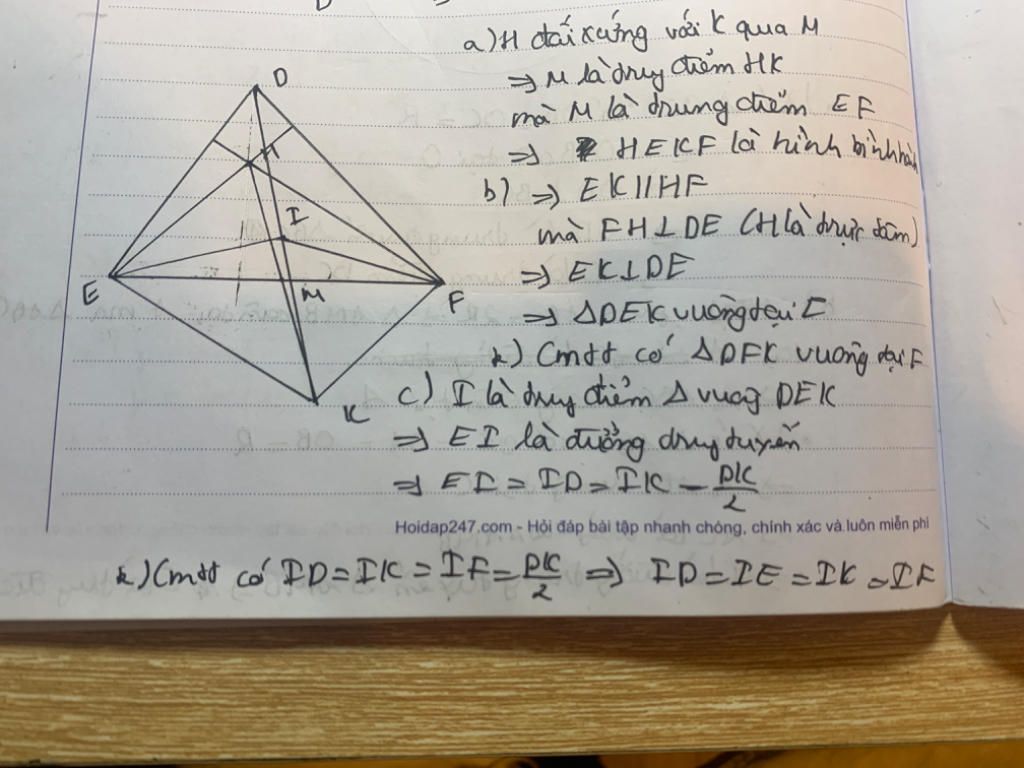 D
H
I
E
M
F
K
a) H đối xứng với K qua M
=> M là trung điểm HK
mà M là trung điểm EF
=> HEKF là hình bình hành
b) => EK // HF
mà FH ⊥ DE (H là trực tâm)
=> EK ⊥ DE
=> ΔDEK vuông tại E
*) Cmtt có ΔDFK vuông tại F
c) I là trung điểm Δ vuông DEK
=> EI là đường trung tuyến
=> EI = ID = IK = DK/2
Hoidap247.com - Hỏi đáp bài tập nhanh chóng, chính xác và luôn miễn phí
*) Cmtt có ID = IK = IF = DK/2 => ID = IE = IK = IF